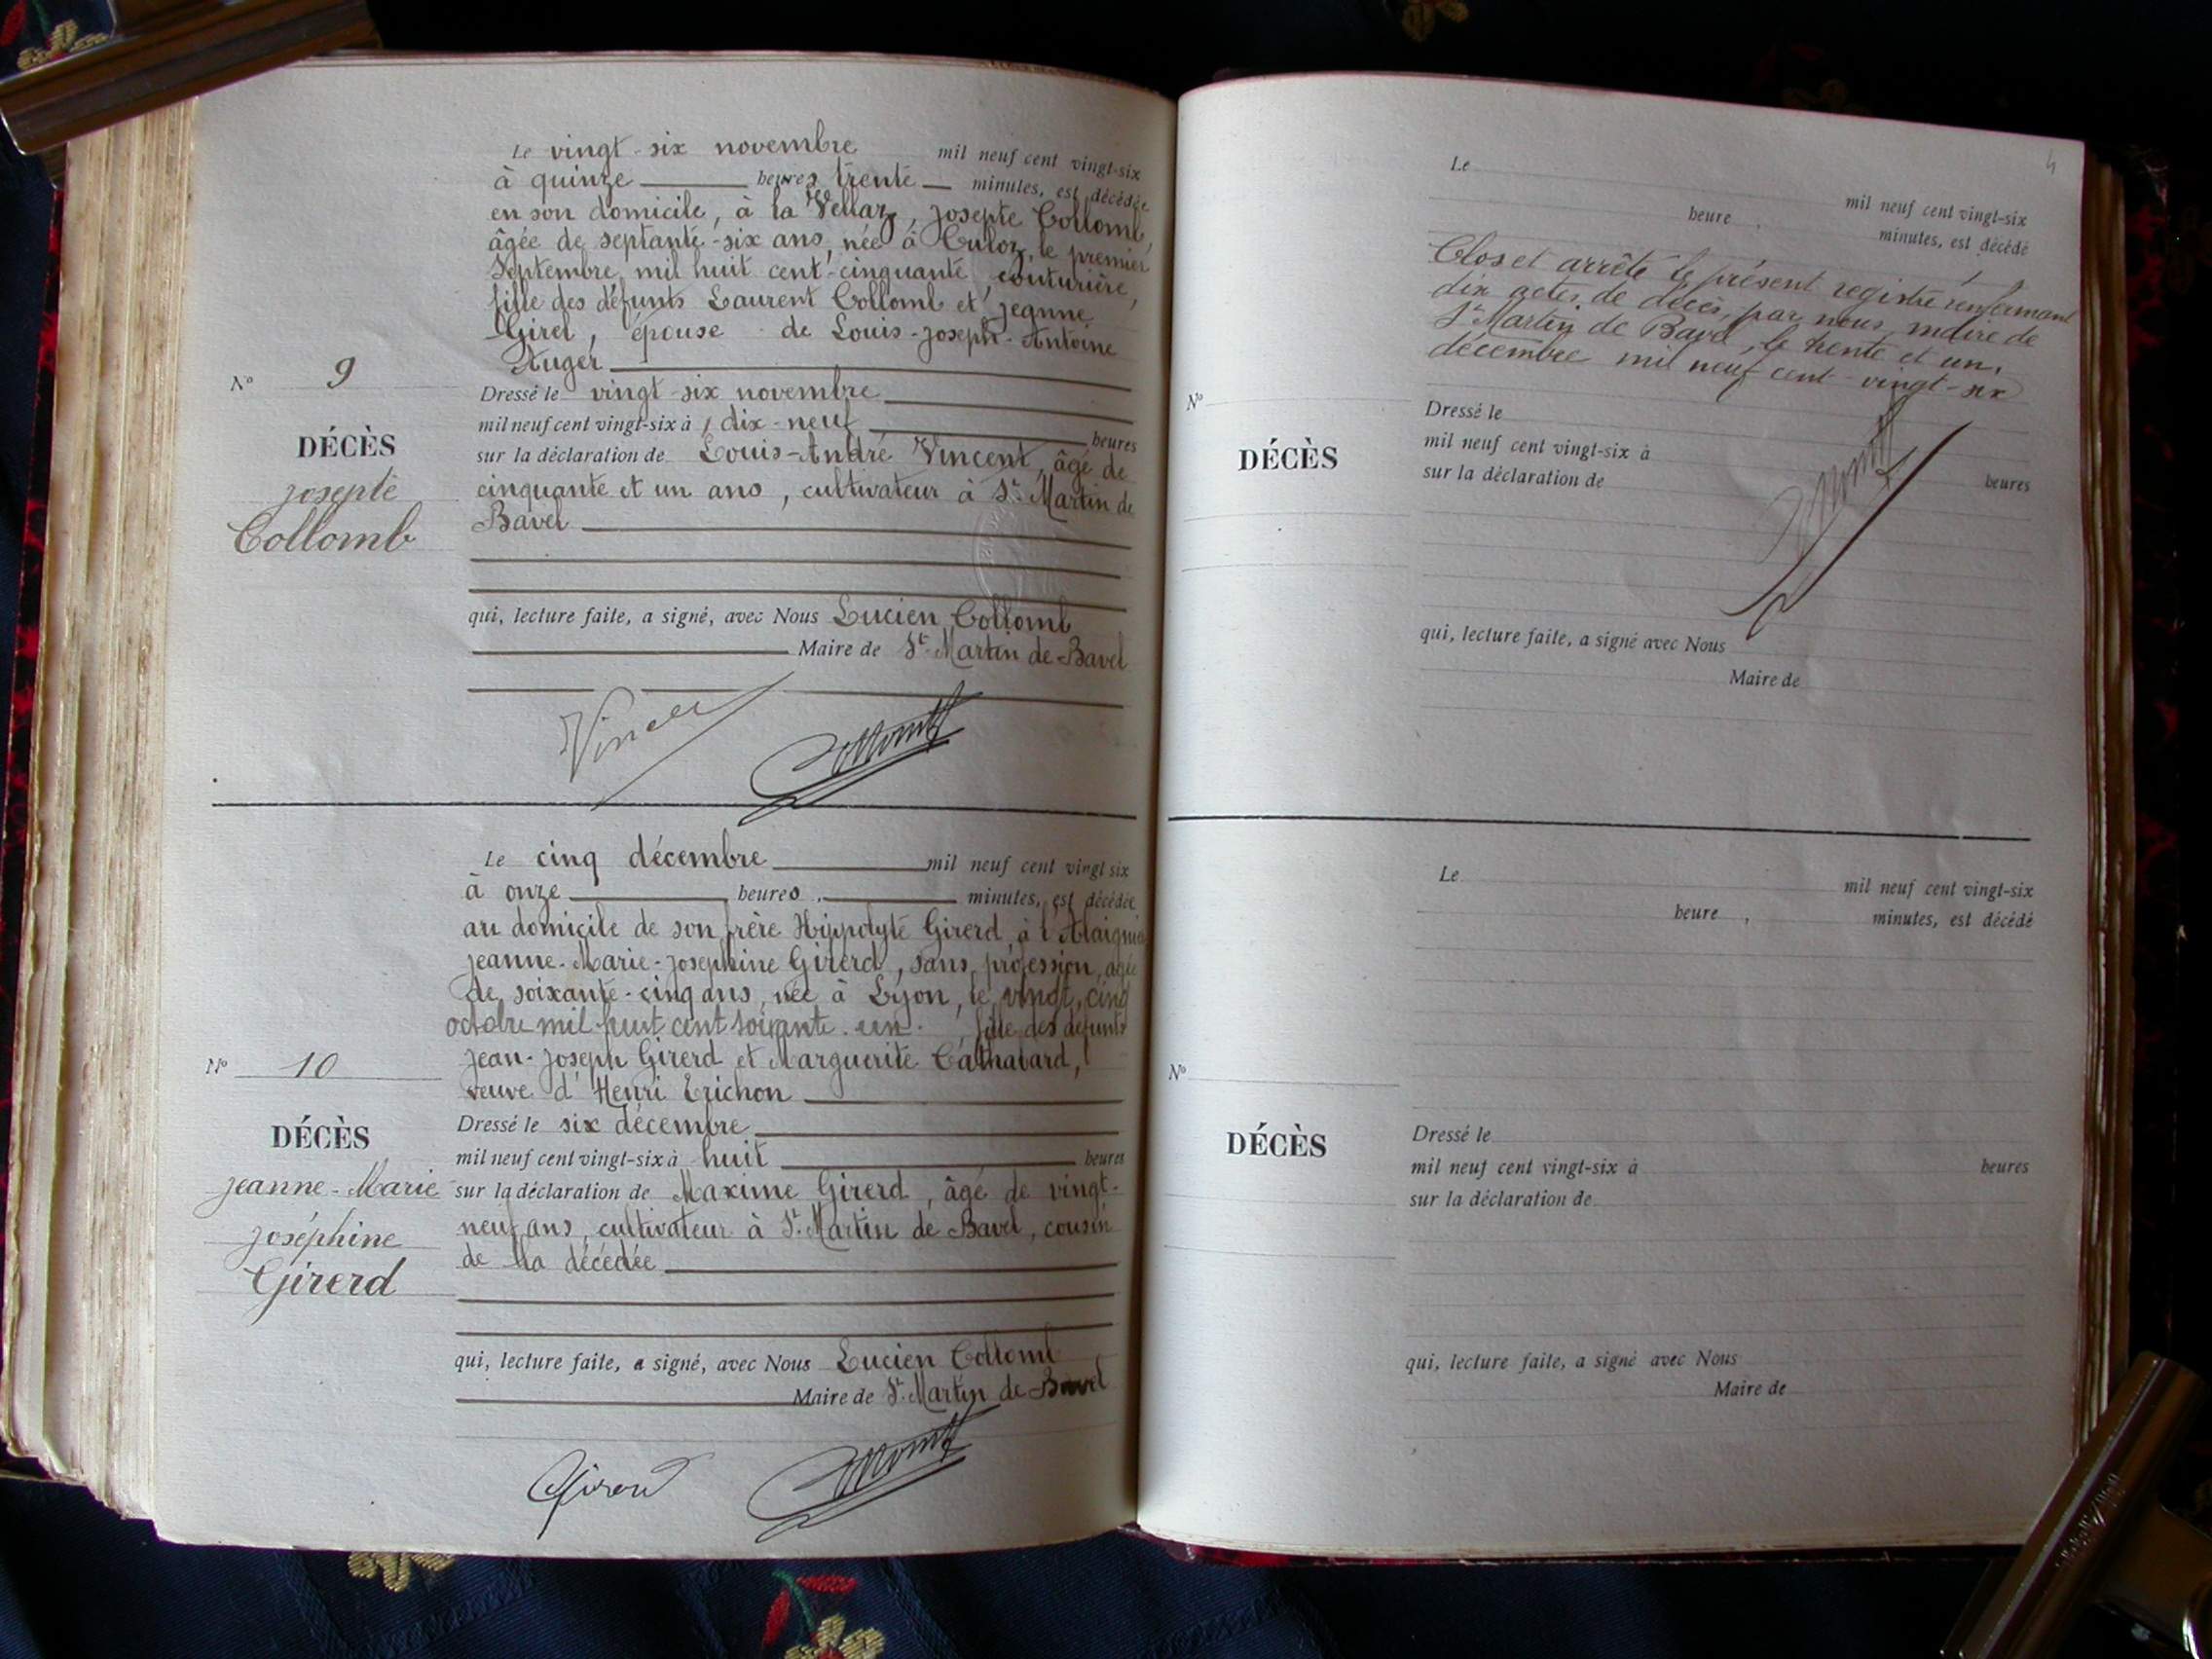 Le vingt-six novembre mil neuf cent vingt-six
à quinze heures trente minutes, est décédée
en son domicile, à la Vellaz, Josepte Collomb,
âgée de septante-six ans, née à Culoz, le premier
Septembre mil huit cent cinquante, couturière,
fille des défunts Laurent Collomb et Jeanne
Girel, épouse de Louis-Joseph-Antoine
Auger
Nº 9
DÉCÈS
Josepte
Collomb
Dressé le vingt-six novembre
mil neuf cent vingt-six à dix-neuf heures
sur la déclaration de Louis-André Vincent, âgé de
cinquante et un ans, cultivateur à St Martin de
Bavel
qui, lecture faite, a signé, avec Nous Lucien Collomb
Maire de St-Martin de Bavel
Vincent
Collomb
Le cinq décembre mil neuf cent vingt six
à onze heures minutes, est décédée
au domicile de son frère Hippolyte Girerd, à
Jeanne-Marie-Josephine Girerd, sans profession, agée
de soixante-cinq ans, née à Lyon, le vingt cinq
octobre mil huit cent soixante-un, fille des défunts
Jean-Joseph Girerd et Marguerite
veuve d'Henri
Nº 10
DÉCÈS
Jeanne-Marie
Joséphine
Girerd
Dressé le six décembre
mil neuf cent vingt-six à huit heures
sur la déclaration de Maxime Girerd, âgé de vingt-
neuf ans, cultivateur à St Martin de Bavel, cousin
de la décédée
qui, lecture faite, a signé, avec Nous Lucien Collomb
Maire de St-Martin de Bavel
Girerd
Collomb
4
Le mil neuf cent vingt-six
heure minutes, est décédé
Clos et arrêté le présent registre renfermant
dix actes de décès, par nous, maire de
St Martin de Bavel, le trente et un
décembre mil neuf cent vingt-six
Nº
DÉCÈS
Dressé le
mil neuf cent vingt-six à heures
sur la déclaration de
Collomb
qui, lecture faite, a signé avec Nous
Maire de
Le mil neuf cent vingt-six
heure , minutes, est décédé
Nº
DÉCÈS
Dressé le
mil neuf cent vingt-six à heures
sur la déclaration de
qui, lecture faite, a signé avec Nous
Maire de